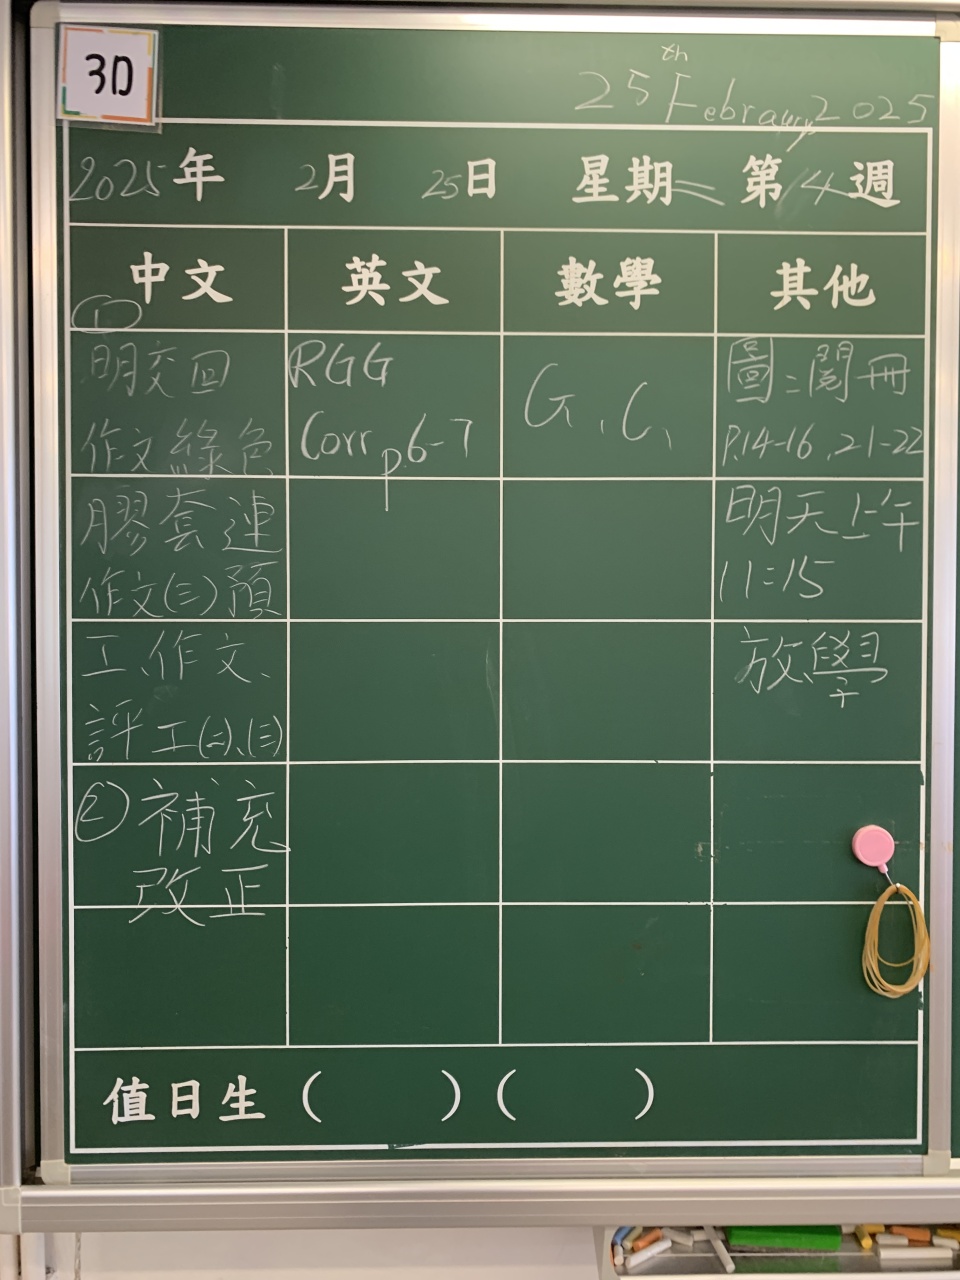 3D
25th February 2025
2025年 2月 25日 星期二 第14週
中文 英文 數學 其他
①
明交回
作文綠色
膠套連
作文(三)預
工、作文、
評工(二)、(三)
②補充
改正
RGG
Corr p.6-7
G.C.
圖:閱冊
P.14-16, 21-22
明天上午
11:15
放學
值日生 (    ) (    )